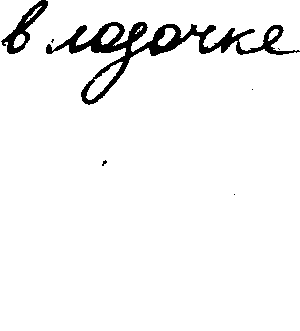 в лодочке